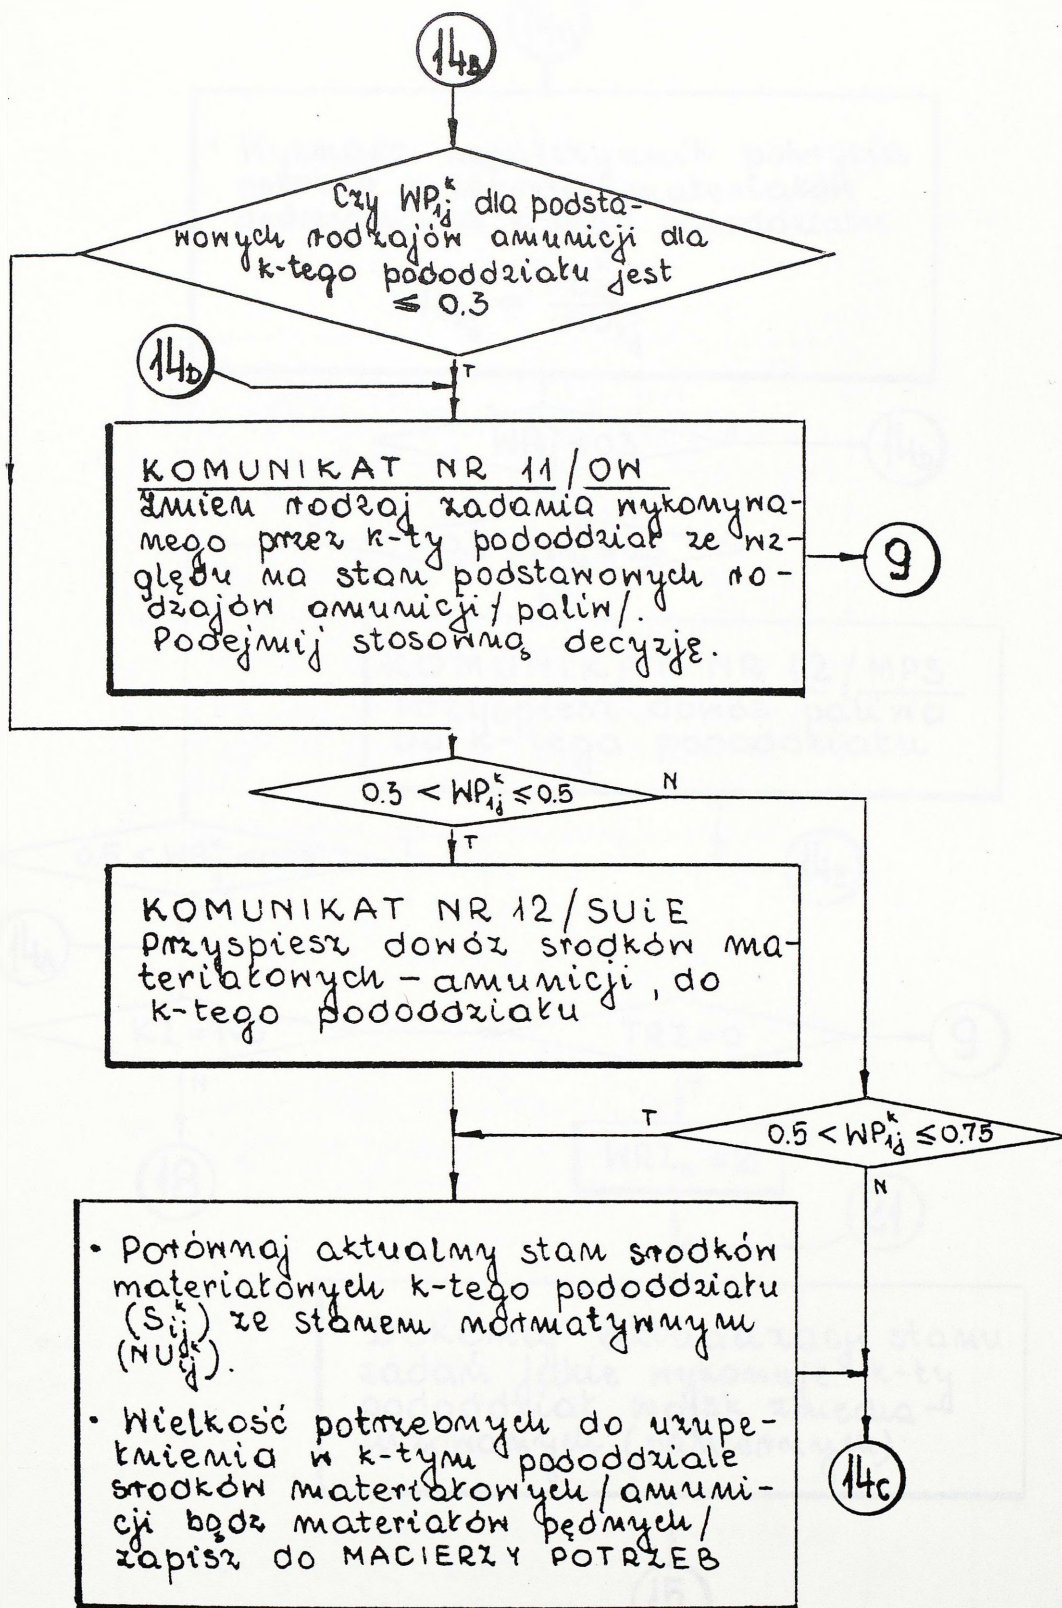 14B
Czy WP₁ⱼᵏ dla podsta-
wowych rodzajów amunicji dla
k-tego pododdziału jest
≤ 0.3
T
14D
KOMUNIKAT NR 11/OW
Zmień rodzaj zadania wykonywa-
nego przez k-ty pododdział ze wz-
ględu na stan podstawowych ro-
dzajów amunicji/paliw/.
Podejmij stosowną decyzję.
9
0.3 < WP₁ⱼᵏ ≤ 0.5
N
T
KOMUNIKAT NR 12/SUiE
Przyspiesz dowóz środków ma-
teriałowych – amunicji, do
k-tego pododdziału
T
0.5 < WP₁ⱼᵏ ≤ 0.75
N
• Porównaj aktualny stan środków
materiałowych k-tego pododdziału
(Sᵢⱼᵏ) ze stanem normatywnym
(NUᵢⱼᵏ).
• Wielkość potrzebnych do uzupe-
łnienia w k-tym pododdziale
środków materiałowych/amuni-
cji bądz materiałów pędnych/
zapisz do MACIERZY POTRZEB
14C